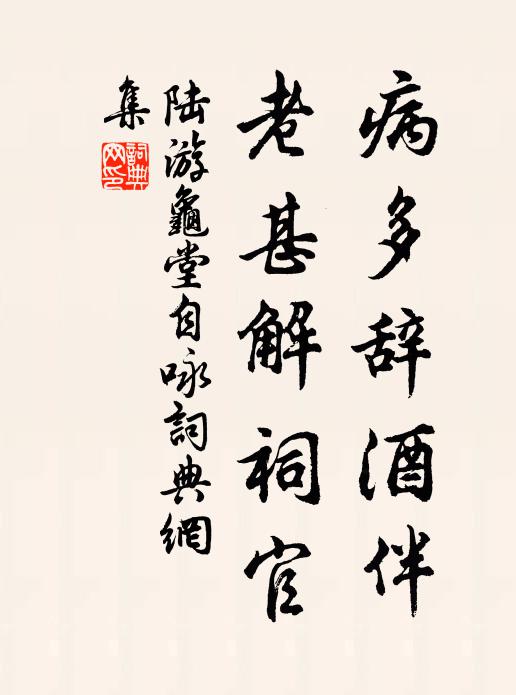 病多辞酒伴
老甚解祠官
陆游龜堂自咏詞典網
集
詞典
网印